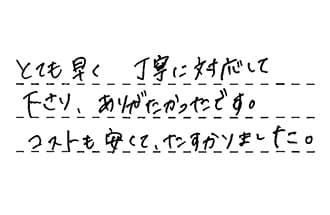 とても早く 丁寧に対応して
下さり、ありがたかったです。
コストも安くて、たすかりました。